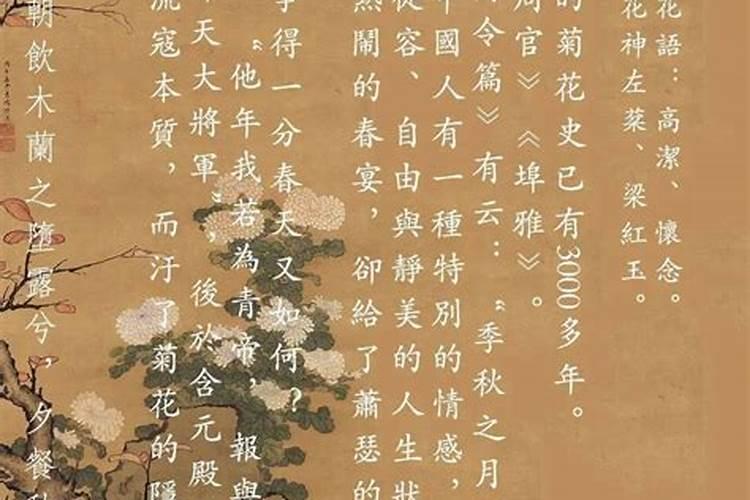 花語：高潔、懷念。
花神左棻、梁紅玉。
的菊花史已有3000多年。
周官》《埤雅》。
月令篇》有云：“季秋之月
中國人有一種特別的情感，
從容、自由與靜美的人生狀
熱鬧的春宴，卻給了蕭瑟的
爭得一分春天又如何？
“他年我若為青帝，報與
天大將軍”，後於含元殿
流寇本質，而汙了菊花的隱
朝飲木蘭之墮露兮，夕餐秋